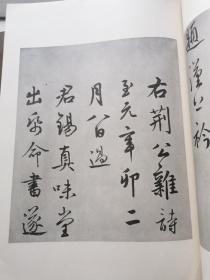 右荆公雜詩
至元辛卯二
月八日過
君錫真味堂
出紙命書遂